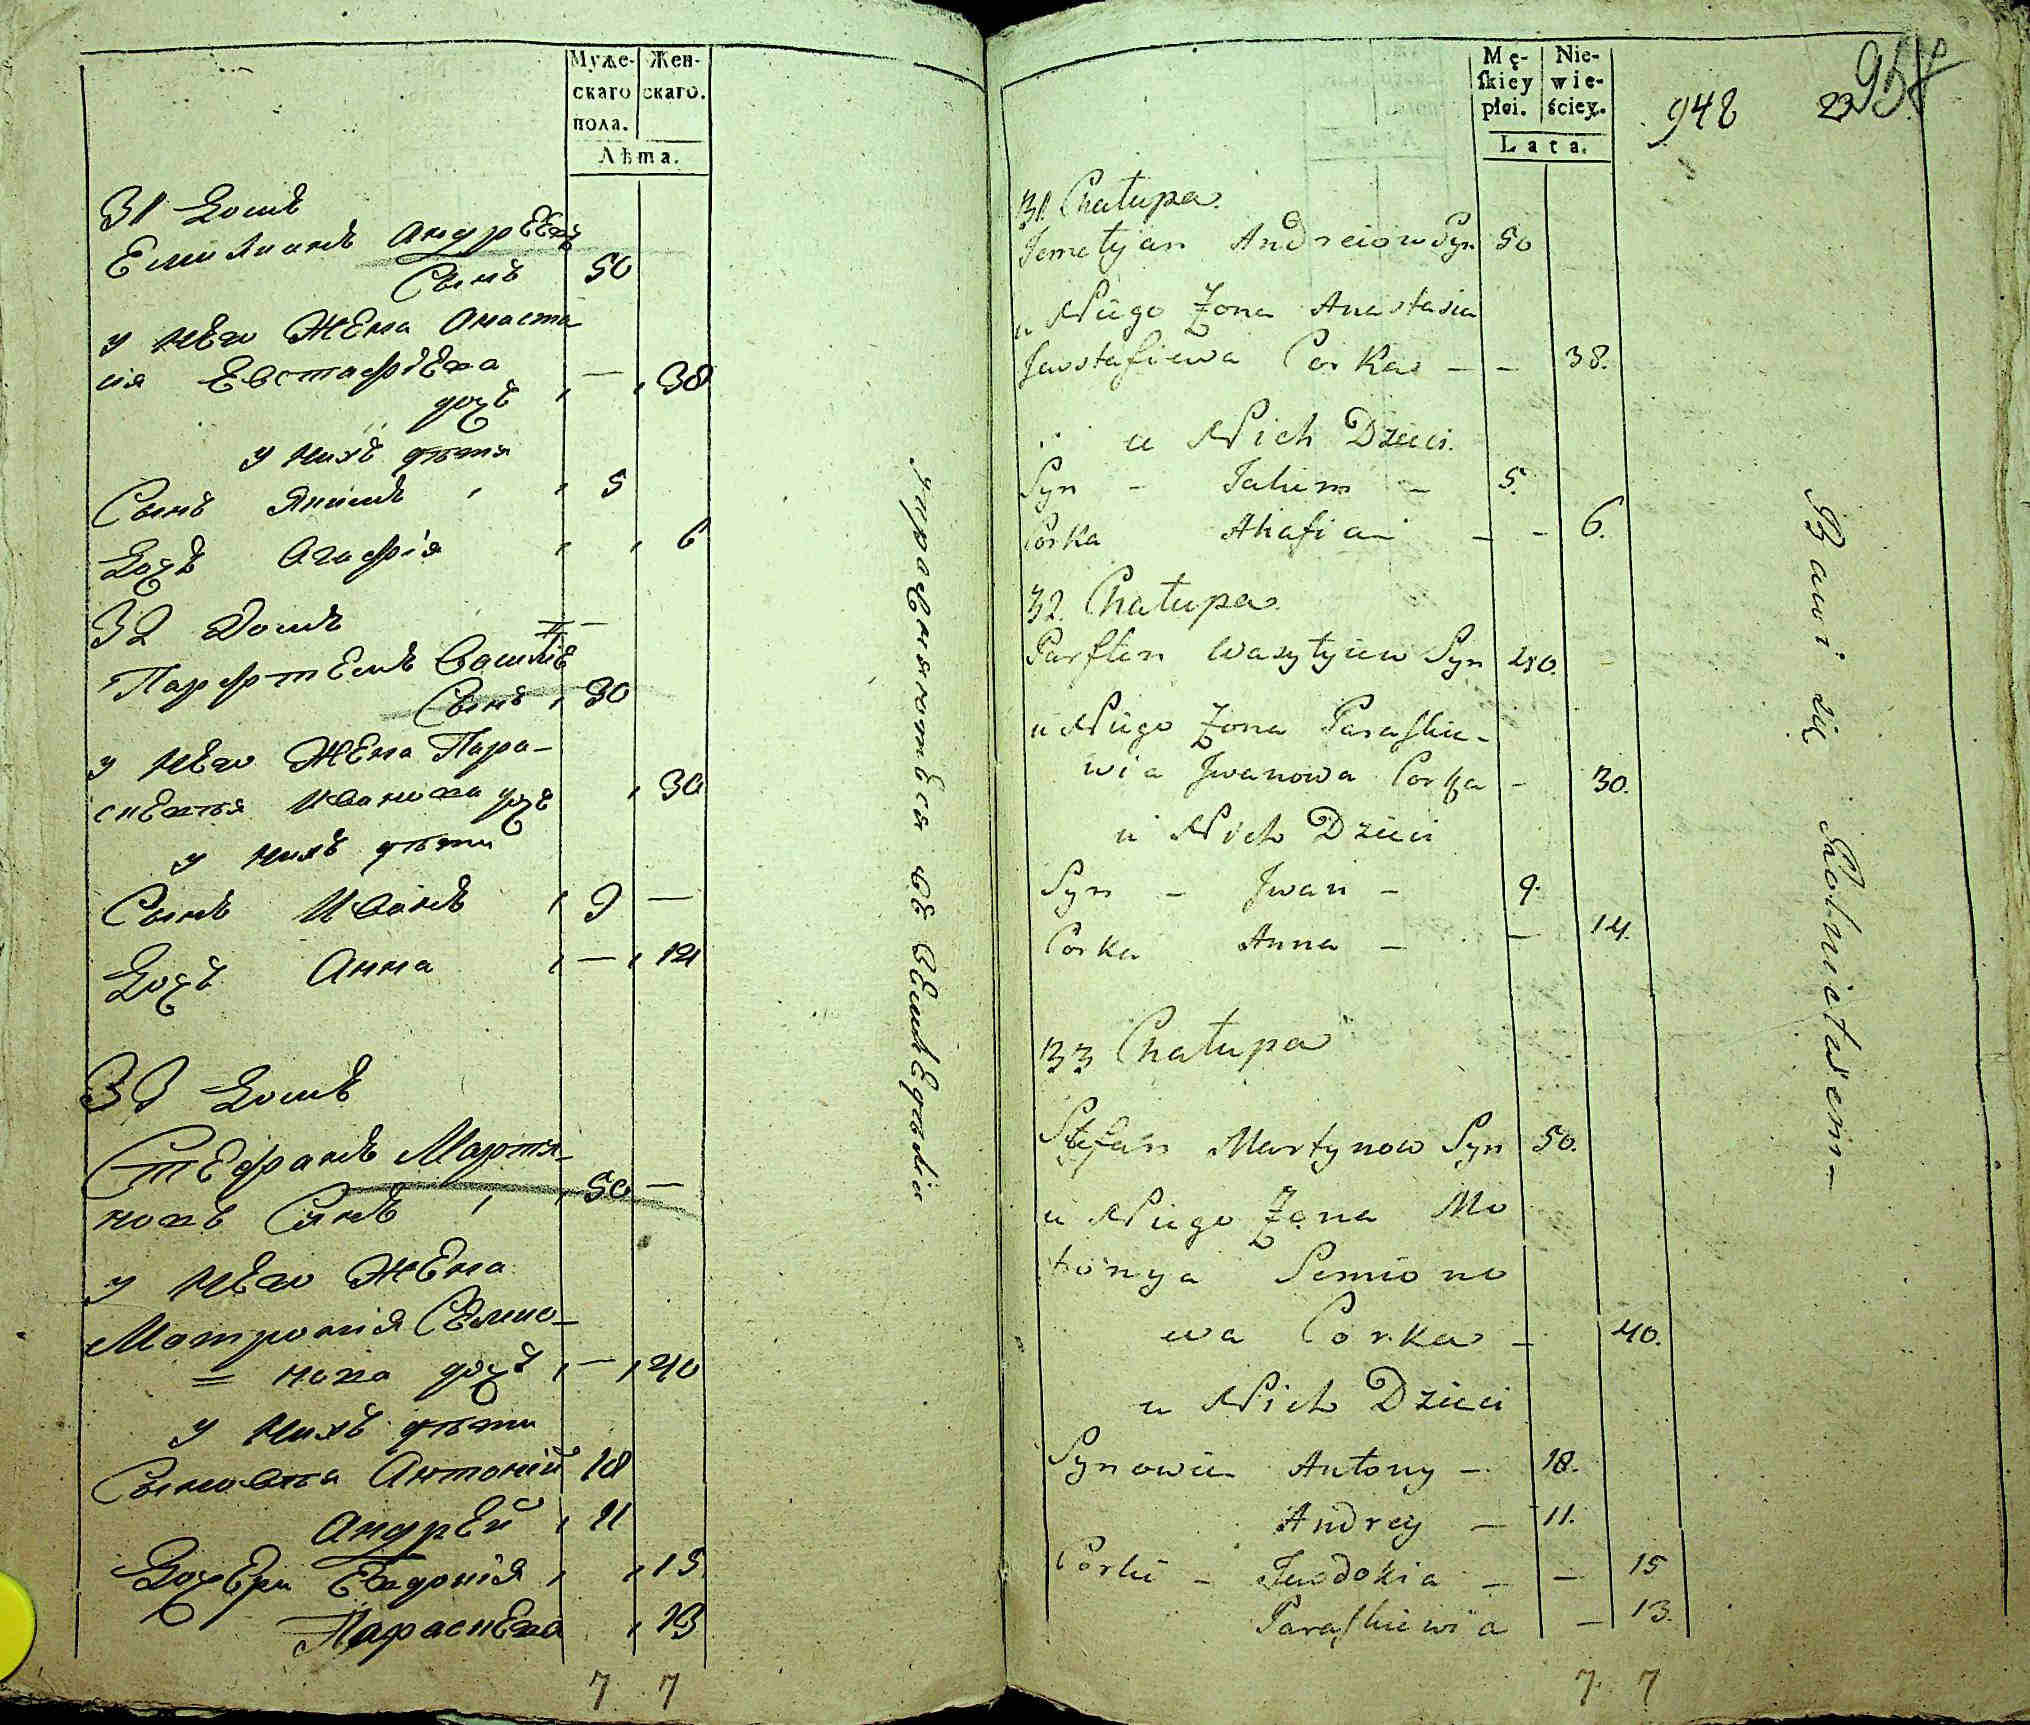 Муже-
скаго
пола.
Жен-
скаго.
Лѣта.
31 Домъ
Емилианъ Андрѣевъ
Сынъ 50
у него Жена Анаста
сия Евстафіева
дочь — 38
у нихъ дѣти
Сынъ Якимъ 5
Дочь Агафія 6
32 Домъ
Парфтенъ Василіе
Сынъ 30
у него Жена Пара-
скевия Иванова дочь 30
у нихъ дѣти
Сынъ Иванъ 9 —
Дочь Анна — 14
33 Домъ
Стефанъ Мартя-
новъ Сынъ 50 —
у него Жена
Матронія Семио-
= нова дочь — 40
у нихъ дѣти
Сыновья Антоній 18
Андрей 11
Дочери Евдокія 15
Параскева 13
7 7
упражняются въ земледѣліи
Mę-
skiey
płci.
Nie-
wie-
ściey.
Lata.
948
23
958
31. Chałupa.
Jemeljan Andreiow Syn 50
u Niego Żona Anastasia
Jewstafiewa Corka — — 38.
u Nich Dzieci.
Syn — Jakim — 5.
Corka Ahafia — — 6.
32. Chałupa.
Parften Wasyłyiew Syn 40.
u Niego Żona Paraskie-
wia Jwanowa Corka — 30.
u Nich Dzieci
Syn — Jwan — 9.
Corka Anna — — 14.
33 Chałupa
Stefan Martynow Syn 50.
u Niego Żona Mo
tronya Semiono
wa Corka — 40.
u Nich Dzieci
Synowie Antony — 18.
Andrey — 11.
Corki — Jewdokia — — 15
Paraskiewia — 13.
7. 7
Bawi się Rolnictwem —